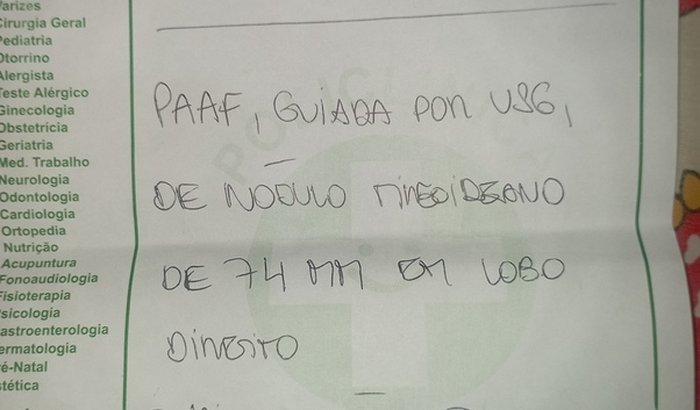 Varizes
Cirurgia Geral
Pediatria
Otorrino
Alergista
Teste Alérgico
Ginecologia
Obstetrícia
Geriatria
Med. Trabalho
Neurologia
Odontologia
Cardiologia
Ortopedia
Nutrição
Acupuntura
Fonoaudiologia
Fisioterapia
Psicologia
Gastroenterologia
Dermatologia
Pré-Natal
Estética
PAAF, GUIADA POR USG,
DE NÓDULO TIREOIDEANO
DE 74 MM EM LOBO
DIREITO